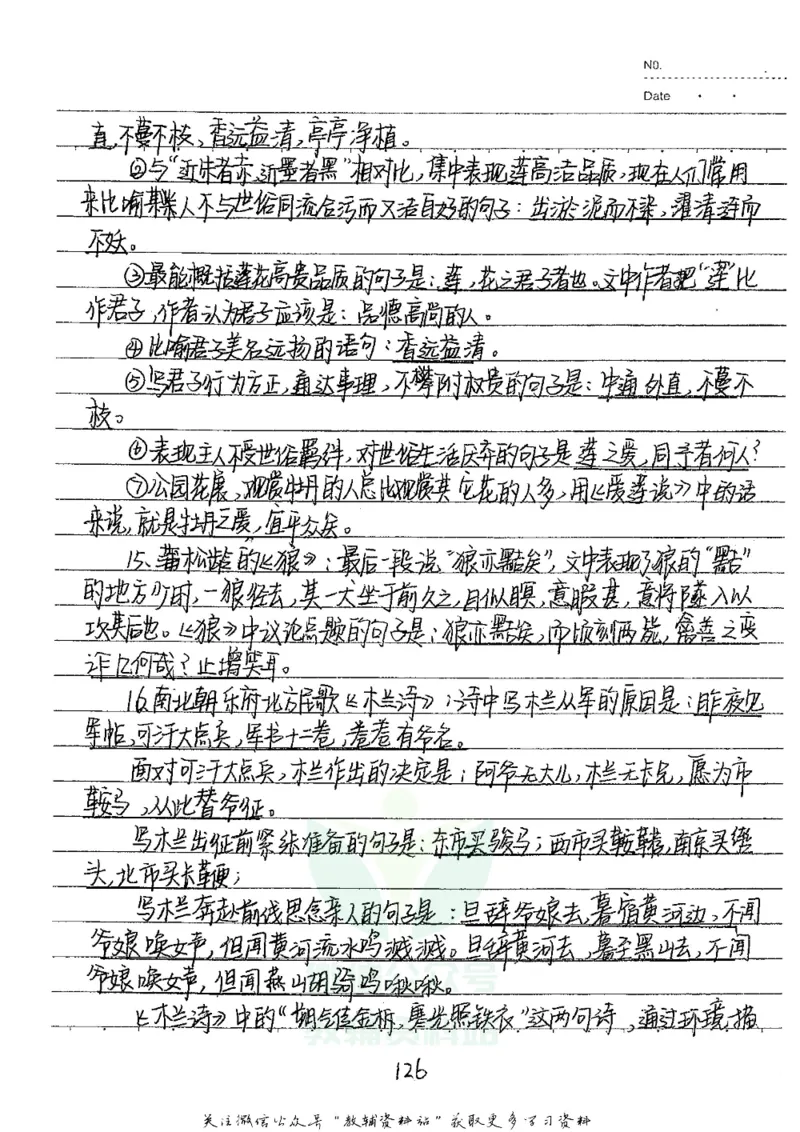 No.
Date
直,不蔓不枝,香远益清,亭亭净植。
②与“近朱者赤,近墨者黑”相对比,集中表现莲高洁品质,现在人们常用
来比喻某些人不与世俗同流合污而又洁自好的句子:出淤泥而不染,濯清涟而
不妖。
③最能概括莲花高贵品质的句子是:莲,花之君子者也。文中作者把“莲”比
作君子,作者认为君子应该是:品德高尚的人。
④比喻君子美名远扬的语句:香远益清。
⑤写君子行为方正,通达事理,不攀附权贵的句子是:中通外直,不蔓不
枝。
⑥表现主人不受世俗羁绊,对世俗生活厌弃的句子是莲之爱,同予者何人?
⑦公园花展,观赏牡丹的人总比观赏其它花的人多,用《爱莲说》中的话
来说,就是牡丹之爱,宜乎众矣。
15、蒲松龄的《狼》:最后一段说“狼亦黠矣”,文中表现了狼的“黠”
的地方少时,一狼径去,其一犬坐于前久之,目似瞑,意暇甚,意将隧入以
攻其后也。《狼》中议论点题的句子是:狼亦黠矣,而顷刻两毙,禽兽之变
诈几何哉?止增笑耳。
16.南北朝乐府北方民歌《木兰诗》:诗中写木兰从军的原因是:昨夜见
军帖,可汗大点兵,军书十二卷,卷卷有爷名。
面对可汗大点兵,木兰作出的决定是:阿爷无大儿,木兰无长兄,愿为市
鞍马,从此替爷征。
写木兰出征前紧张准备的句子是:东市买骏马;西市买鞍鞯,南京买辔
头,北市买长鞭;
写木兰奔赴前线思念亲人的句子是:旦辞爷娘去,暮宿黄河边,不闻
爷娘唤女声,但闻黄河流水鸣溅溅。旦辞黄河去,暮至黑山去,不闻
爷娘唤女声,但闻燕山胡骑鸣啾啾。
《木兰诗》中的“朔气传金柝,寒光照铁衣”这两句诗,通过环境描
126
关注微信公众号“教辅资料站”获取更多学习资料